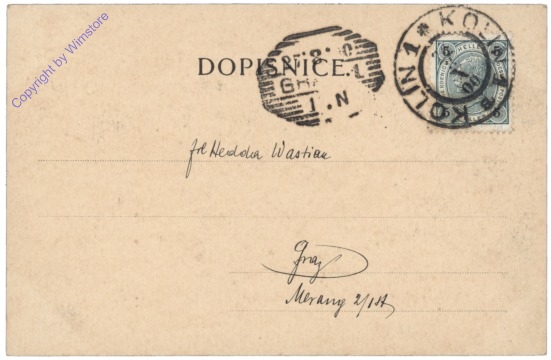 Copyright by Wimstore
DOPISNICE.
KOLIN 1 * KOLIN
GRAZ
1. N
frl Hedda Wastian
Graz
Merang 2/I St